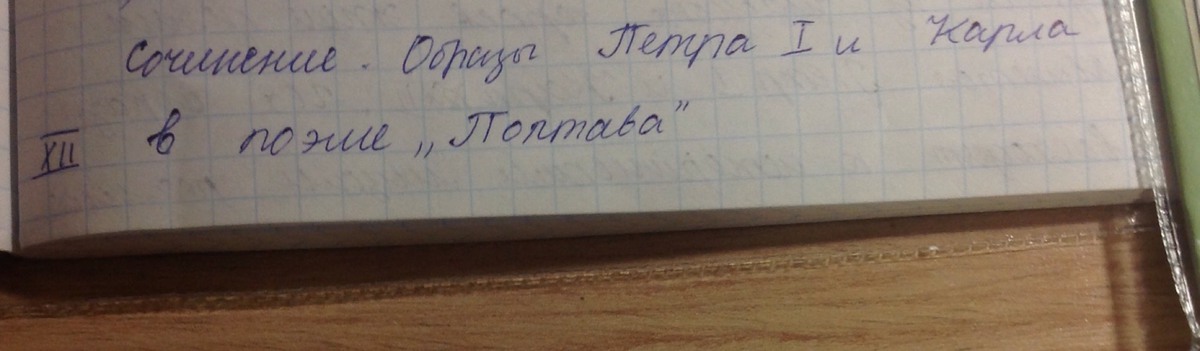 Сочинение. Образы Петра I и Карла
XII в поэме „Полтава”